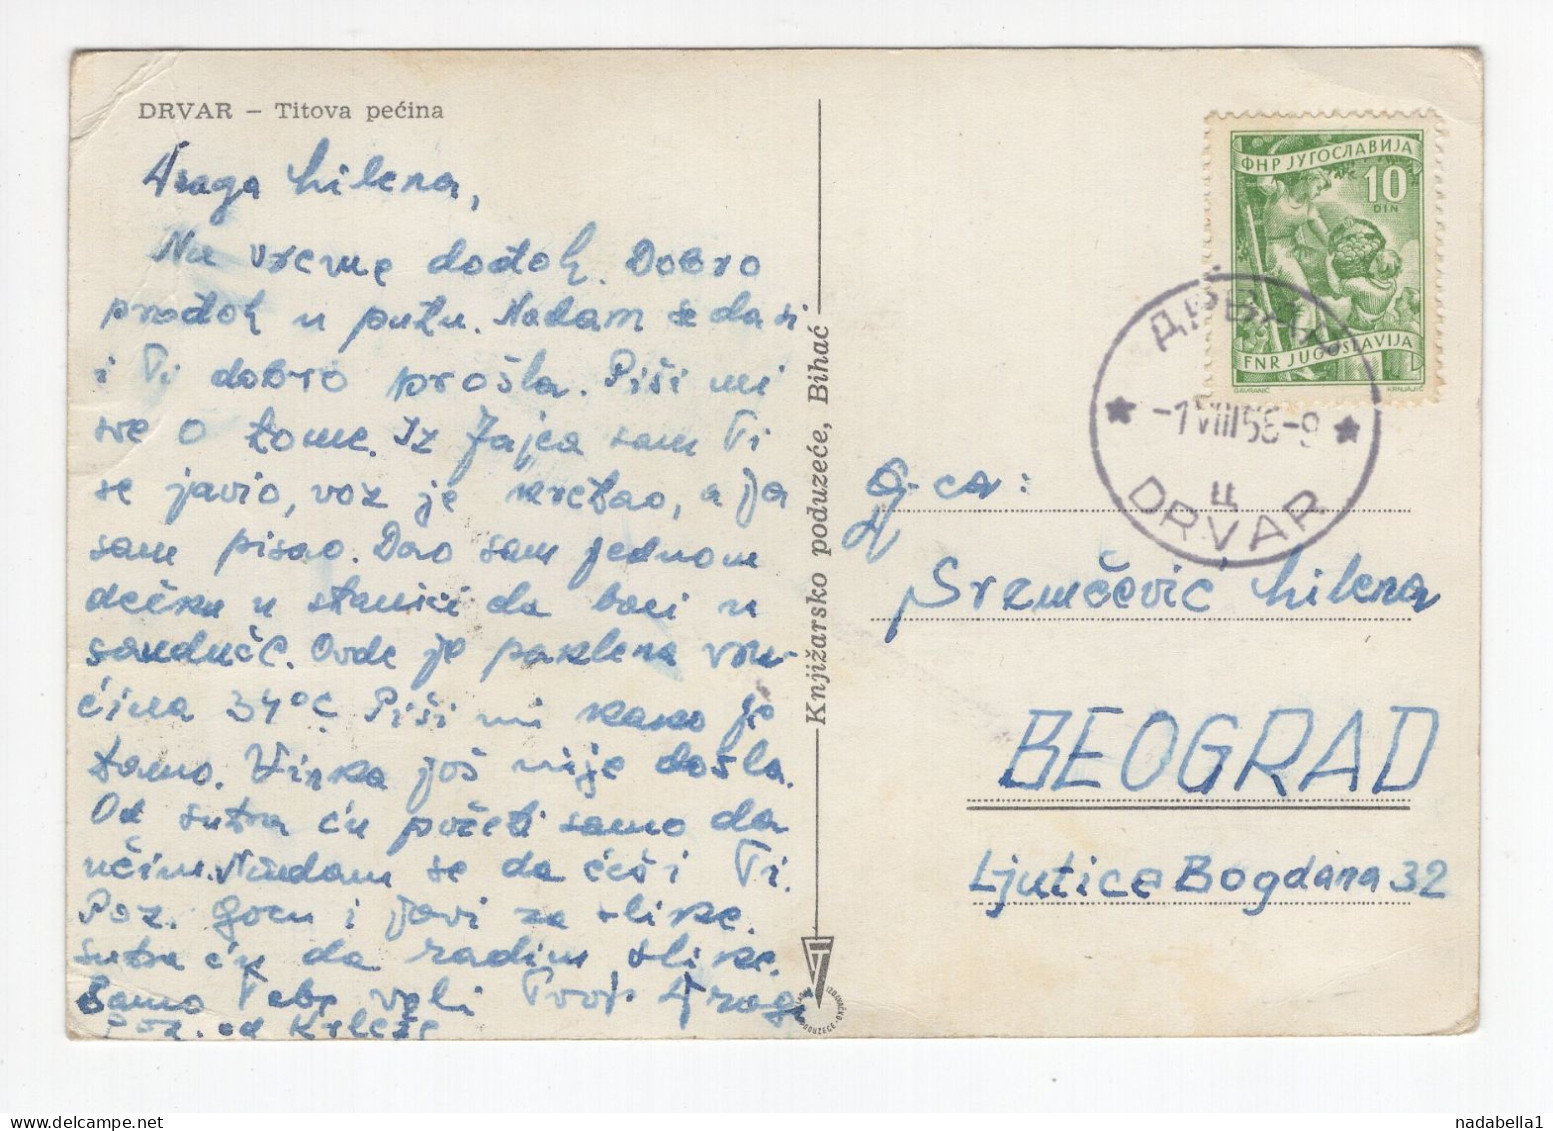 DRVAR – Titova pećina
Draga Milena,
Na vreme dođoh. Dobro
prođoh u putu. Nadam se da si
i Ti dobro prošla. Piši mi
sve o tome. Iz Jajca sam Ti
se javio, voz je kretao, a ja
sam pisao. Dao sam jednom
dečku u stanici da baci u
sanduče. Ovde je paklena vru-
ćina 34°C Piši mi kako je
tamo. Vinka još nije došla.
Od sutra ću početi samo da
učim. Nadam se da ćeš i Ti.
Poz. Gocu i javi za slike.
Sutra ću da radim slike.
Samo Tebe voli Tvoj Dragi
Poz. od
Knjižarsko poduzeće, Bihać
ФНР ЈУГОСЛАВИЈА
10
DIN
FNR JUGOSLAVIJA
ДРВАР
-1 VIII 56-9
Ц
DRVAR
G-ca:
Sremčević Milena
BEOGRAD
Ljutice Bogdana 32
nadabella1